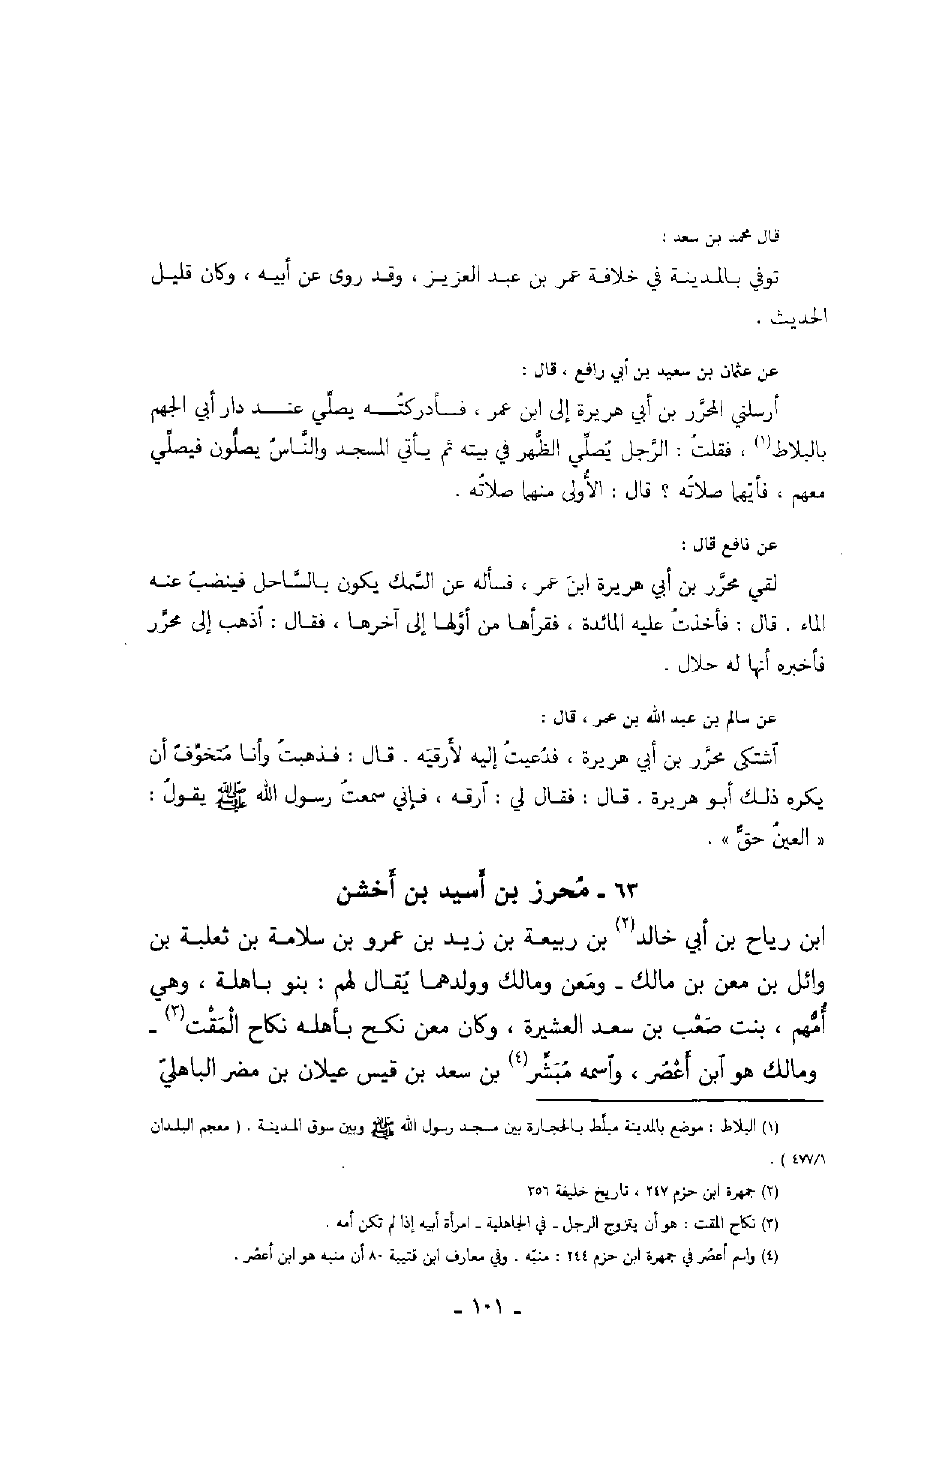 قال محمد بن سعد :
توفي بالمدينة في خلافة عمر بن عبد العزيز ، وقد روى عن أبيه ، وكان قليل
الحديث .
عن عثمان بن سعيد بن أبي رافع ، قال :
أرسلني المحَرَّر بن أبي هريرة إلى ابن عمر ، فأدركتُه يصلّي عند دار أبي الجهم
بالبلاط(١) ، فقلتُ : الرَّجل يُصلّي الظُّهر في بيته ثم يأتي المسجد والنَّاسُ يصلُّون فيصلّي
معهم ، فأيّها صلاتُه ؟ قال : الأُولى منهما صلاتُه .
عن نافع قال :
لقي محرَّر بن أبي هريرة ابنَ عمر ، فسأله عن السَّمك يكون بالسَّاحل فينضبُ عنه
الماء . قال : فأخذتُ عليه المائدة ، فقرأها من أوَّلها إلى آخرها ، فقال : آذهب إلى محرَّر
فأخبره أنها له حلال .
عن سالم بن عبد الله بن عمر ، قال :
آشتكى محرَّر بن أبي هريرة ، فدُعيتُ إليه لأرقيَه . قال : فذهبتُ وأنا مُتخوِّفٌ أن
يكره ذلك أبو هريرة . قال : فقال لي : آرقه ، فإني سمعتُ رسول الله ﷺ يقولُ :
« العينُ حقٌّ » .
٦٣ ـ مُحرز بن أَسيد بن أَخشن
ابن رياح بن أبي خالد(٢) بن ربيعة بن زيد بن عمرو بن سلامة بن ثعلبة بن
وائل بن معن بن مالك ـ ومَعن ومالك وولدهما يُقال لهم : بنو باهلة ، وهي
أُمُّهم ، بنت صَعْب بن سعد العشيرة ، وكان معن نكح بأهله نكاح الْمَقْت(٣) ـ
ومالك هو آبن أَعْصُر ، وآسمه مُبَشِّر(٤) بن سعد بن قيس عيلان بن مضر الباهليّ
(١) البلاط : موضع بالمدينة مبلَّط بالحجارة بين مسجد رسول الله ﷺ وبين سوق المدينة . ( معجم البلدان
٤٧٧/١ ) .
(٢) جمهرة ابن حزم ٢٤٧ ، تاريخ خليفة ٣٥٦
(٣) نكاح المقت : هو أن يتزوج الرجل ـ في الجاهلية ـ امرأة أبيه إذا لم تكن أمه .
(٤) واسم أعصُر في جمهرة ابن حزم ٢٤٤ : منبّه . وفي معارف ابن قتيبة ٨٠ أن منبه هو ابن أعصُر .
ـ ١٠١ ـ